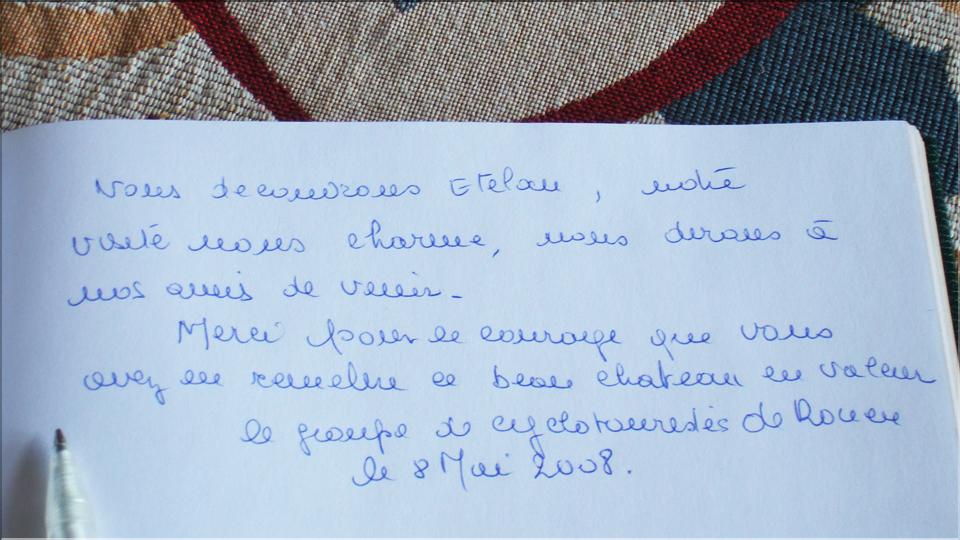 Nous decouvrons Etelan, notre
visite nous charme, nous dirons à
nos amis de venir.
Merci pour le courage que vous
avez eu remettre ce beau chateau en valeur
le groupe de cyclotouristes de Rouen
le 8 Mai 2008.